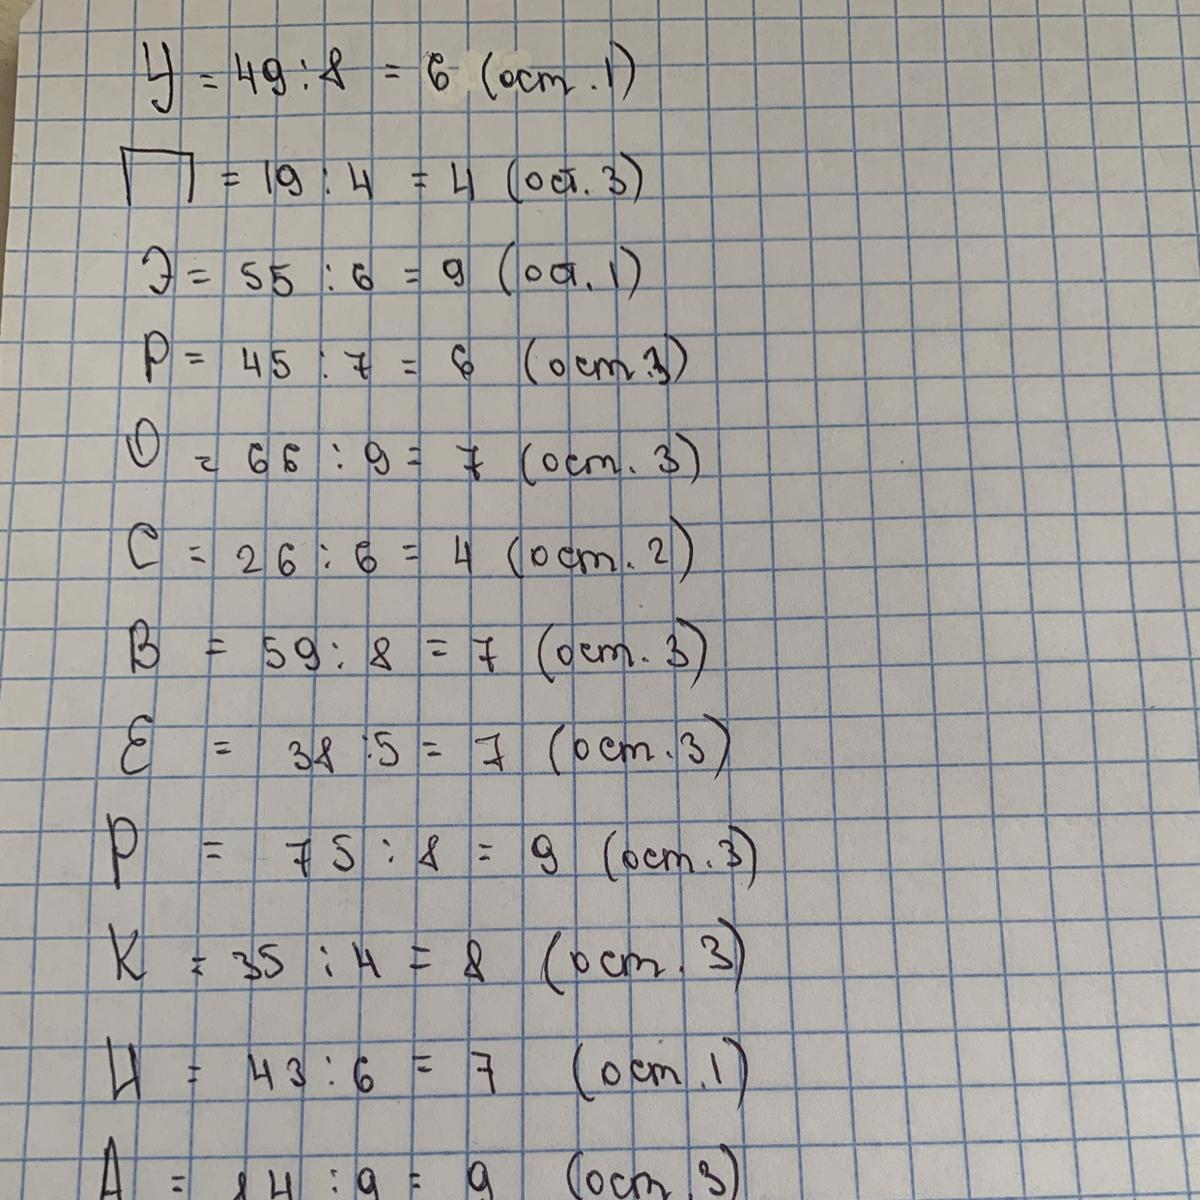 У = 49 : 8 = 6 (ост. 1)
П = 19 : 4 = 4 (ост. 3)
Э = 55 : 6 = 9 (ост. 1)
Р = 45 : 7 = 6 (ост. 3)
О = 66 : 9 = 7 (ост. 3)
С = 26 : 6 = 4 (ост. 2)
В = 59 : 8 = 7 (ост. 3)
Е = 38 : 5 = 7 (ост. 3)
Р = 75 : 8 = 9 (ост. 3)
К = 35 : 4 = 8 (ост. 3)
И = 43 : 6 = 7 (ост. 1)
А = 84 : 9 = 9 (ост. 3)